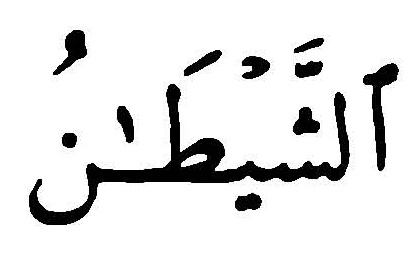 ٱلشَّيۡطَٰنُ